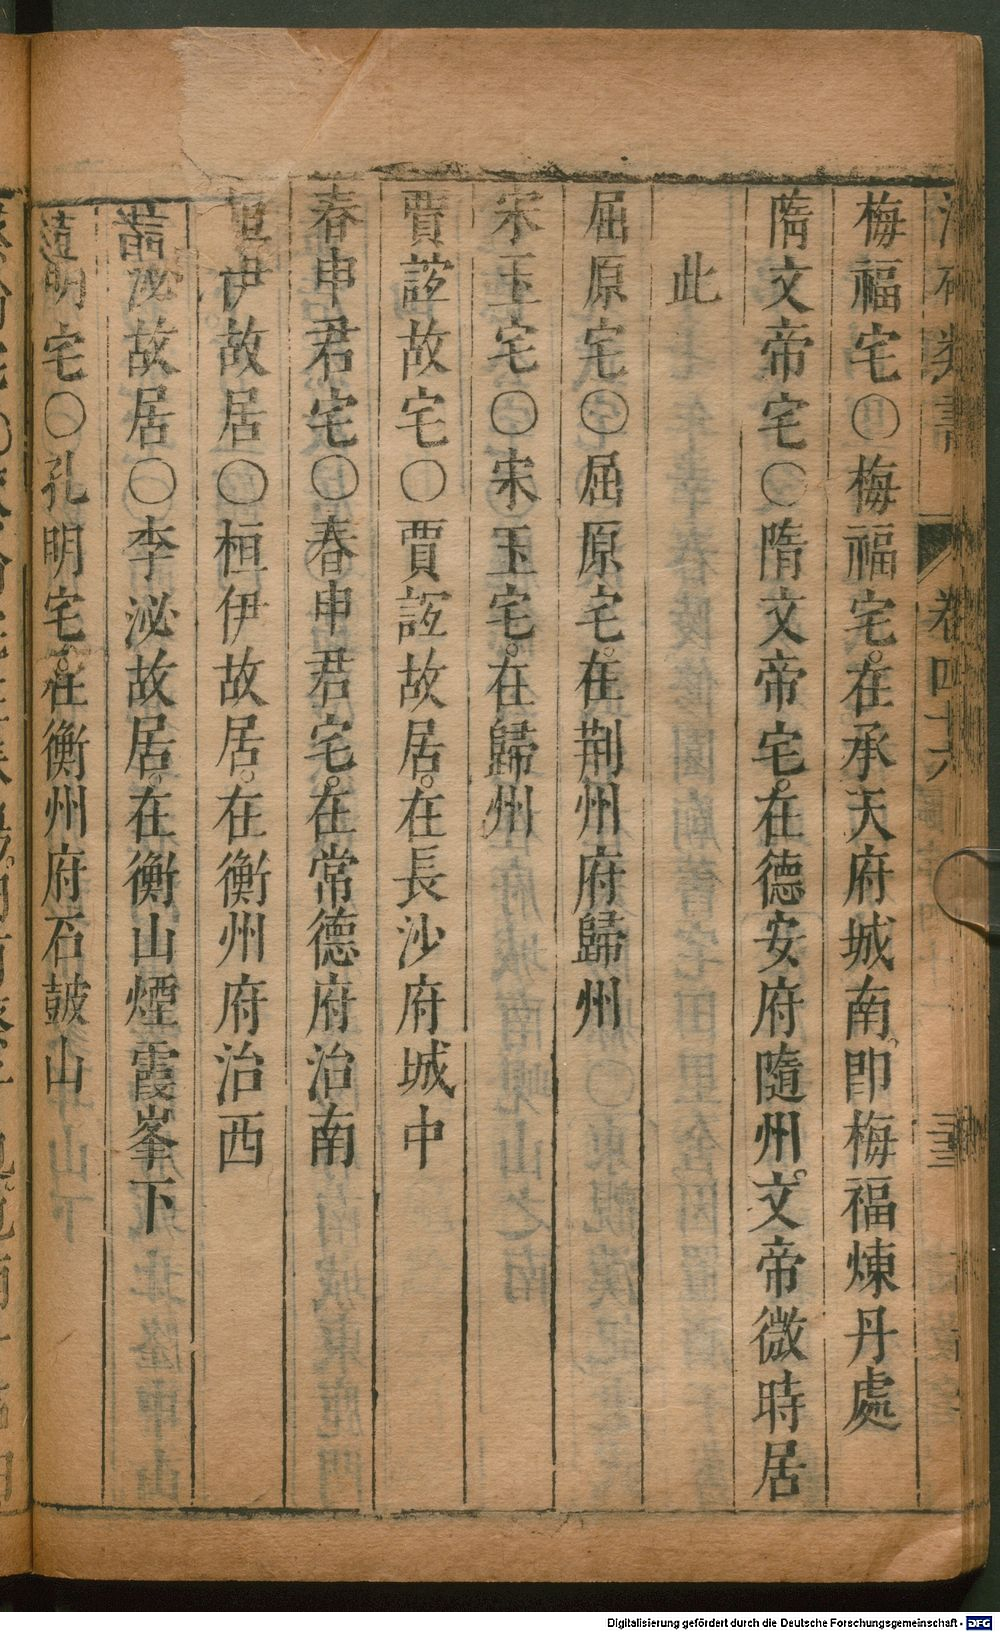 卷四十六
梅福宅〇梅福宅。在承天府城南。即梅福煉丹處
隋文帝宅〇隋文帝宅。在德安府隨州。文帝微時居
此
屈原宅〇屈原宅。在荆州府歸州
宋玉宅〇宋玉宅。在歸州
賈誼故宅〇賈誼故居。在長沙府城中
春申君宅〇春申君宅。在常德府治南
桓伊故居〇桓伊故居。在衡州府治西
泌故居〇李泌故居。在衡山煙霞峯下
明宅〇孔明宅。在衡州府石鼓山
Digitalisierung gefördert durch die Deutsche Forschungsgemeinschaft - DFG